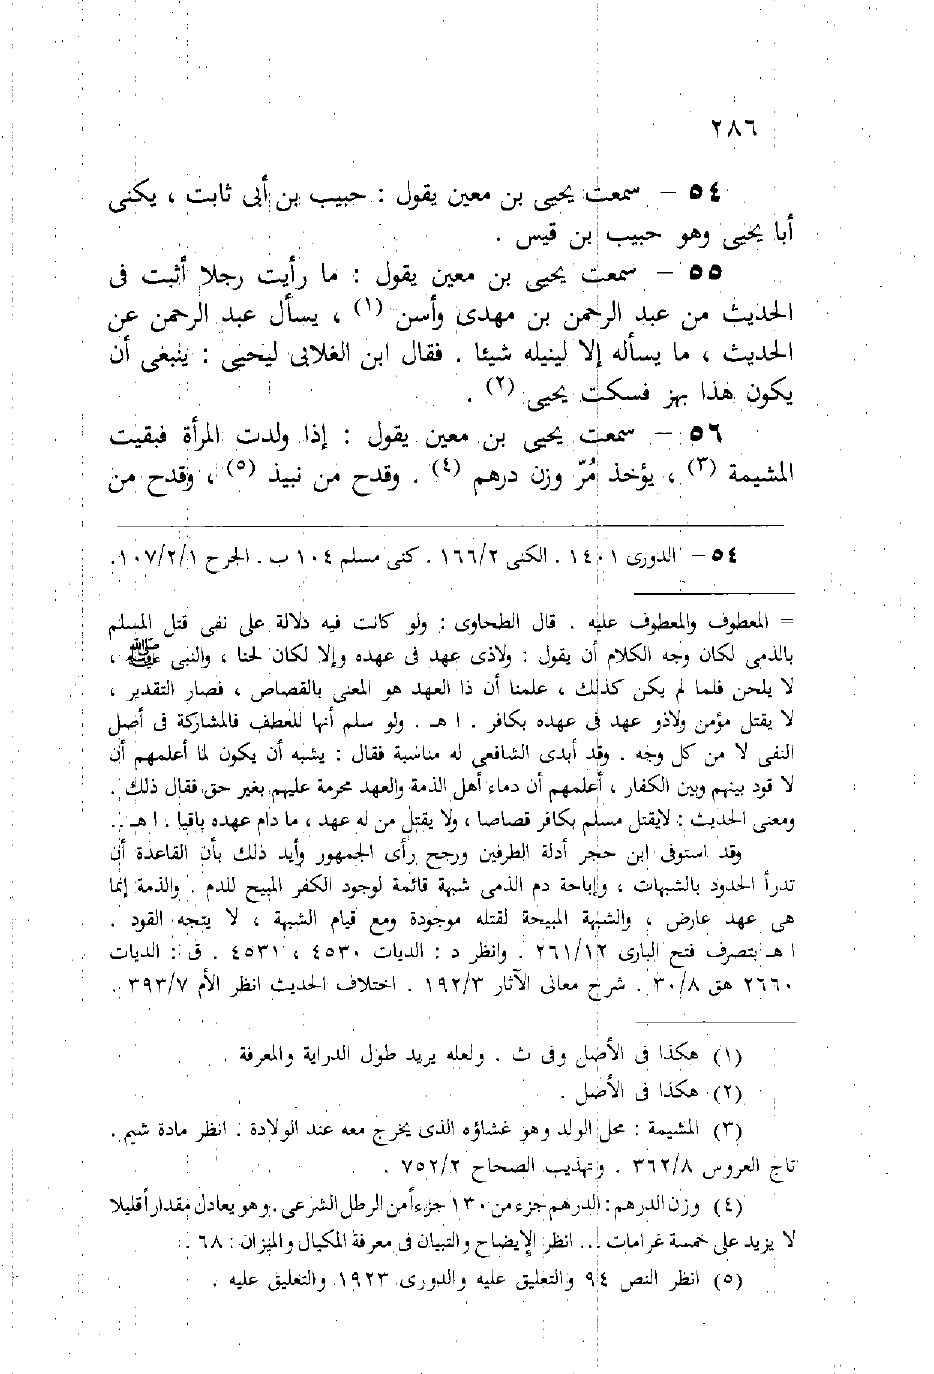 ٢٨٦
٥٤ – سمعت يحيى بن معين يقول : حبيب بن أبى ثابت ، يكنى
أبا يحيى وهو حبيب بن قيس .
٥٥ – سمعت يحيى بن معين يقول : ما رأيت رجلا أثبت فى
الحديث من عبد الرحمن بن مهدى وأسن (١) ، يسأل عبد الرحمن عن
الحديث ، ما يسأله إلا لينيله شيئا . فقال ابن الغلابى ليحيى : ينبغى أن
يكون هذا بهز فسكت يحيى (٢) .
٥٦ – سمعت يحيى بن معين يقول : إذا ولدت المرأة فبقيت
المشيمة (٣) ، يؤخذ مُرّ وزن درهم (٤) . وقدح من نبيذ (٥) ، وقدح من
٥٤ – الدورى ١٤٠١ . الكنى ١٦٦/٢ . كنى مسلم ١٠٤ ب . الجرح ١٠٧/٢/١.
= المعطوف والمعطوف عليه . قال الطحاوى : ولو كانت فيه دلالة على نفى قتل المسلم
بالذمى لكان وجه الكلام أن يقول : ولاذى عهد فى عهده وإلا لكان لحنا ، والنبى ﷺ ،
لا يلحن فلما لم يكن كذلك ، علمنا أن ذا العهد هو المعنى بالقصاص ، فصار التقدير ،
لا يقتل مؤمن ولاذو عهد فى عهده بكافر . ا هـ . ولو سلم أنها للعطف فالمشاركة فى أصل
النفى لا من كل وجه . وقد أبدى الشافعى له مناسبة فقال : يشبه أن يكون لما أعلمهم أن
لا قود بينهم وبين الكفار ، أعلمهم أن دماء أهل الذمة والعهد محرمة عليهم بغير حق فقال ذلك .
ومعنى الحديث : لايقتل مسلم بكافر قصاصا ، ولا يقتل من له عهد ، ما دام عهده باقيا . ا هـ .
وقد استوفى ابن حجر أدلة الطرفين ورجح رأى الجمهور وأيد ذلك بأن القاعدة أن
تدرأ الحدود بالشبهات ، وإباحة دم الذمى شبهة قائمة لوجود الكفر المبيح للدم . والذمة إنما
هى عهد عارض ، والشبهة المبيحة لقتله موجودة ومع قيام الشبهة ، لا يتجه القود .
ا هـ بتصرف فتح البارى ٢٦١/١٢ . وانظر د : الديات ٤٥٣٠ ، ٤٥٣١ . ق : الديات
٢٦٦٠ هق ٣٠/٨ . شرح معانى الآثار ١٩٢/٣ . اختلاف الحديث انظر الأم ٣٩٣/٧ .
(١) هكذا فى الأصل وفى ث . ولعله يريد طول الدراية والمعرفة .
(٢) هكذا فى الأصل .
(٣) المشيمة : محل الولد وهو غشاؤه الذى يخرج معه عند الولادة . انظر مادة شيم .
تاج العروس ٣٦٢/٨ . وتهذيب الصحاح ٧٥٢/٢ .
(٤) وزن الدرهم : الدرهم جزء من ١٣٠ جزءاً من الرطل الشرعى . وهو يعادل مقدار أقليلا
لا يزيد على خمسة غرامات ... انظر الإيضاح والتبيان فى معرفة المكيال والميزان : ٦٨ .
(٥) انظر النص ٩٤ والتعليق عليه والدورى ١٩٢٣ والتعليق عليه .